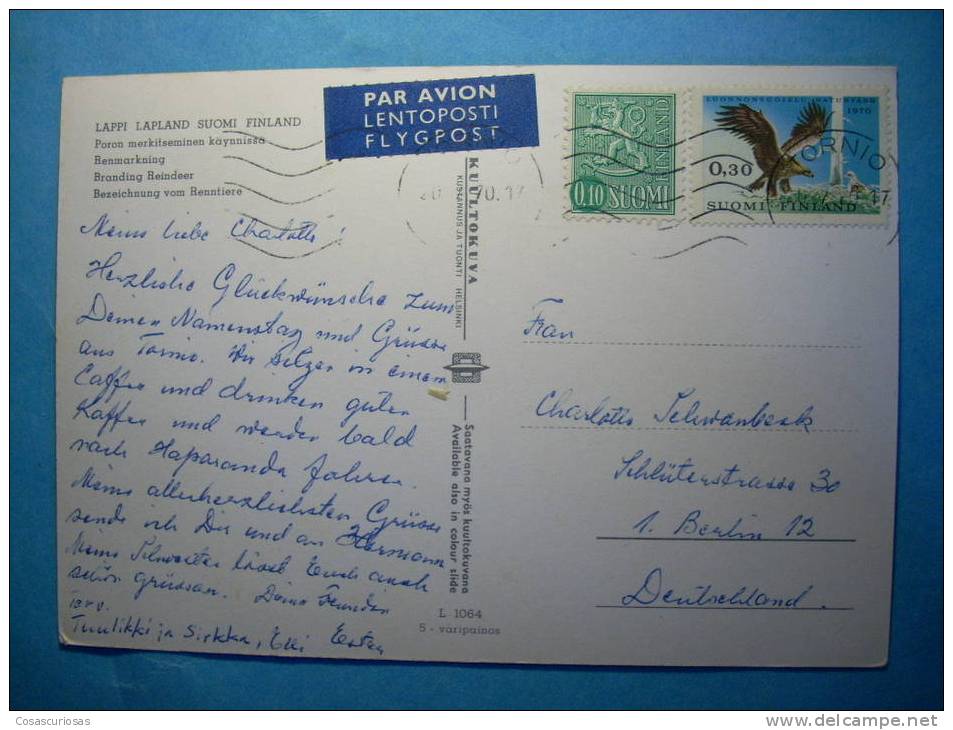 LAPPI LAPLAND SUOMI FINLAND
Poron merkitseminen käynnissä
Renmarkning
Branding Reindeer
Bezeichnung vom Renntiere
PAR AVION
LENTOPOSTI
FLYGPOST
0,10 SUOMI
FINLAND
LUONNONSUOJELU NATURVÅRD
1970
0,30
SUOMI-FINLAND
TORNIO
70.17
17
KUULTOKUVA
KUSTANNUS JA TUONTI HELSINKI
Saatavana myös kuultokuvana
Available also in colour slide
L 1064
5-väripainos
Meine liebe Charlotte!
Herzliche Glückwünsche zum
Deinen Namenstag und Grüsse
aus Tornio. Wir sitzen in einem
Caffee und drinken guten
Kaffee und werden bald
nach Haparanda fahren.
Meine allerherzlichsten Grüsse
sende ich Dir und an Hermann
Meine Schwester lässt Euch auch
schön grüssen. Deine
Terv.
Tuulikki ja Sirkka, Elli
Frau
Charlotte Schwanbeck
Schlüterstrasse 30
1. Berlin 12
Deutschland.
Cosascuriosas
www.delcampe.net